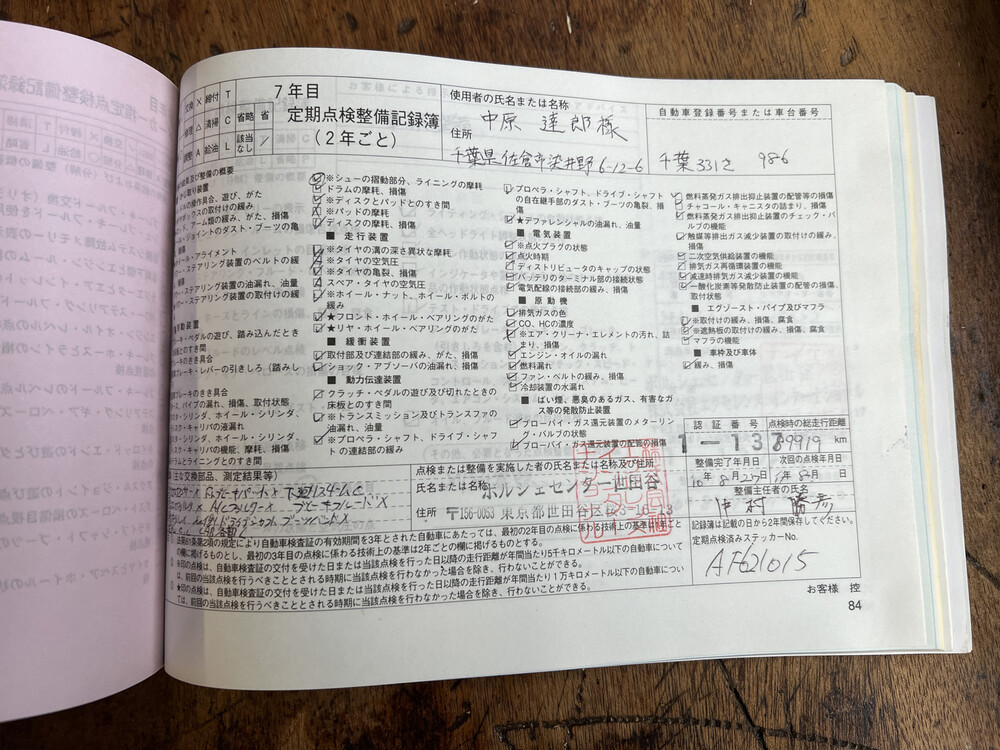 交換 × 締付 T
修理 △ 清掃 C 省略 省
調整 A 給油 L 該当なし /
7年目
定期点検整備記録簿
(2年ごと)
使用者の氏名または名称
中原 達郎様
住所
千葉県佐倉市染井野6-12-6
自動車登録番号または車台番号
千葉 331 さ 986
点検結果及び整備の概要
ハンドルの操作具合、遊び、がた
ギヤボックスの取付けの緩み
ロッド、アーム類の緩み、がた、損傷
ボール・ジョイントのダスト・ブーツの亀裂、損傷
ホイール・アライメント
パワー・ステアリング装置のベルトの緩み、損傷
パワー・ステアリング装置の油漏れ、油量
パワー・ステアリング装置の取付けの緩み
■ 制動装置
ブレーキ・ペダルの遊び、踏み込んだときの床板とのすき間
ブレーキのきき具合
ブレーキ・レバーの引きしろ(踏みしろ)
駐車ブレーキのきき具合
ホース、パイプの漏れ、損傷、取付状態
マスタ・シリンダ、ホイール・シリンダ、ディスク・キャリパの液漏れ
マスタ・シリンダ、ホイール・シリンダ、ディスク・キャリパの機能、摩耗、損傷
ドラムとライニングとのすき間
※シューの摺動部分、ライニングの摩耗
ドラムの摩耗、損傷
※ディスクとパッドとのすき間
※パッドの摩耗
ディスクの摩耗、損傷
■ 走行装置
※タイヤの溝の深さ異状な摩耗
※タイヤの空気圧
※タイヤの亀裂、損傷
スペア・タイヤの空気圧
※ホイール・ナット、ホイール・ボルトの緩み
★フロント・ホイール・ベアリングのがた
★リヤ・ホイール・ベアリングのがた
■ 緩衝装置
取付部及び連結部の緩み、がた、損傷
ショック・アブソーバの油漏れ、損傷
■ 動力伝達装置
クラッチ・ペダルの遊び及び切れたときの床板とのすき間
※トランスミッション及びトランスファの油漏れ、油量
※プロペラ・シャフト、ドライブ・シャフトの連結部の緩み
プロペラ・シャフト、ドライブ・シャフトの自在継手部のダスト・ブーツの亀裂、損傷
★デファレンシャルの油漏れ、油量
■ 電気装置
※点火プラグの状態
点火時期
ディストリビュータのキャップの状態
バッテリのターミナル部の接続状態
電気配線の接続部の緩み、損傷
■ 原動機
排気ガスの色
CO、HCの濃度
※エア・クリーナ・エレメントの汚れ、詰まり、損傷
エンジン・オイルの漏れ
燃料漏れ
ファン・ベルトの緩み、損傷
冷却装置の水漏れ
■ ばい煙、悪臭のあるガス、有害なガス等の発散防止装置
ブローバイ・ガス還元装置のメターリング・バルブの状態
ブローバイ・ガス還元装置の配管の損傷
燃料蒸発ガス排出抑止装置の配管等の損傷
チャコール・キャニスタの詰まり、損傷
燃料蒸発ガス排出抑止装置のチェック・バルブの機能
触媒等排出ガス減少装置の取付けの緩み、損傷
二次空気供給装置の機能
排気ガス再循環装置の機能
減速時排気ガス減少装置の機能
一酸化炭素等発散防止装置の配管の損傷、取付状態
■ エグゾースト・パイプ及びマフラ
※取付けの緩み、損傷、腐食
※遮熱板の取付けの緩み、損傷、腐食
マフラの機能
■ 車枠及び車体
緩み、損傷
(主な交換部品、測定結果等)
点検または整備を実施した者の氏名または名称及び住所
氏名または名称 ポルシェセンター世田谷
住所 〒156-0053 東京都世田谷区桜
認証番号
1-137
点検時の総走行距離
79919 km
整備完了年月日
10年8月27日
次回の点検年月日
11年8月 日
整備主任者の氏名
中村
記録簿は記載の日から2年間保存してください。
定期点検済みステッカーNo.
AF621015
法第48条第2項の規定により自動車検査証の有効期間を3年とされた自動車にあたっては、最初の2年目の点検に係わる技術上の基準は1年ごとの欄に掲げるものとし、最初の3年目の点検に係わる技術上の基準は2年ごとの欄に掲げるものとする。
※印の点検は、自動車検査証の交付を受けた日または当該点検を行った日以降の走行距離が年間当たり5千キロメートル以下の自動車については、前回の当該点検を行うべきこととされる時期に当該点検を行わなかった場合を除き、行わないことができる。
★印の点検は、自動車検査証の交付を受けた日または当該点検を行った日以降の走行距離が年間当たり1万キロメートル以下の自動車については、前回の当該点検を行うべきこととされる時期に当該点検を行わなかった場合を除き、行わないことができる。
お客様 控
84